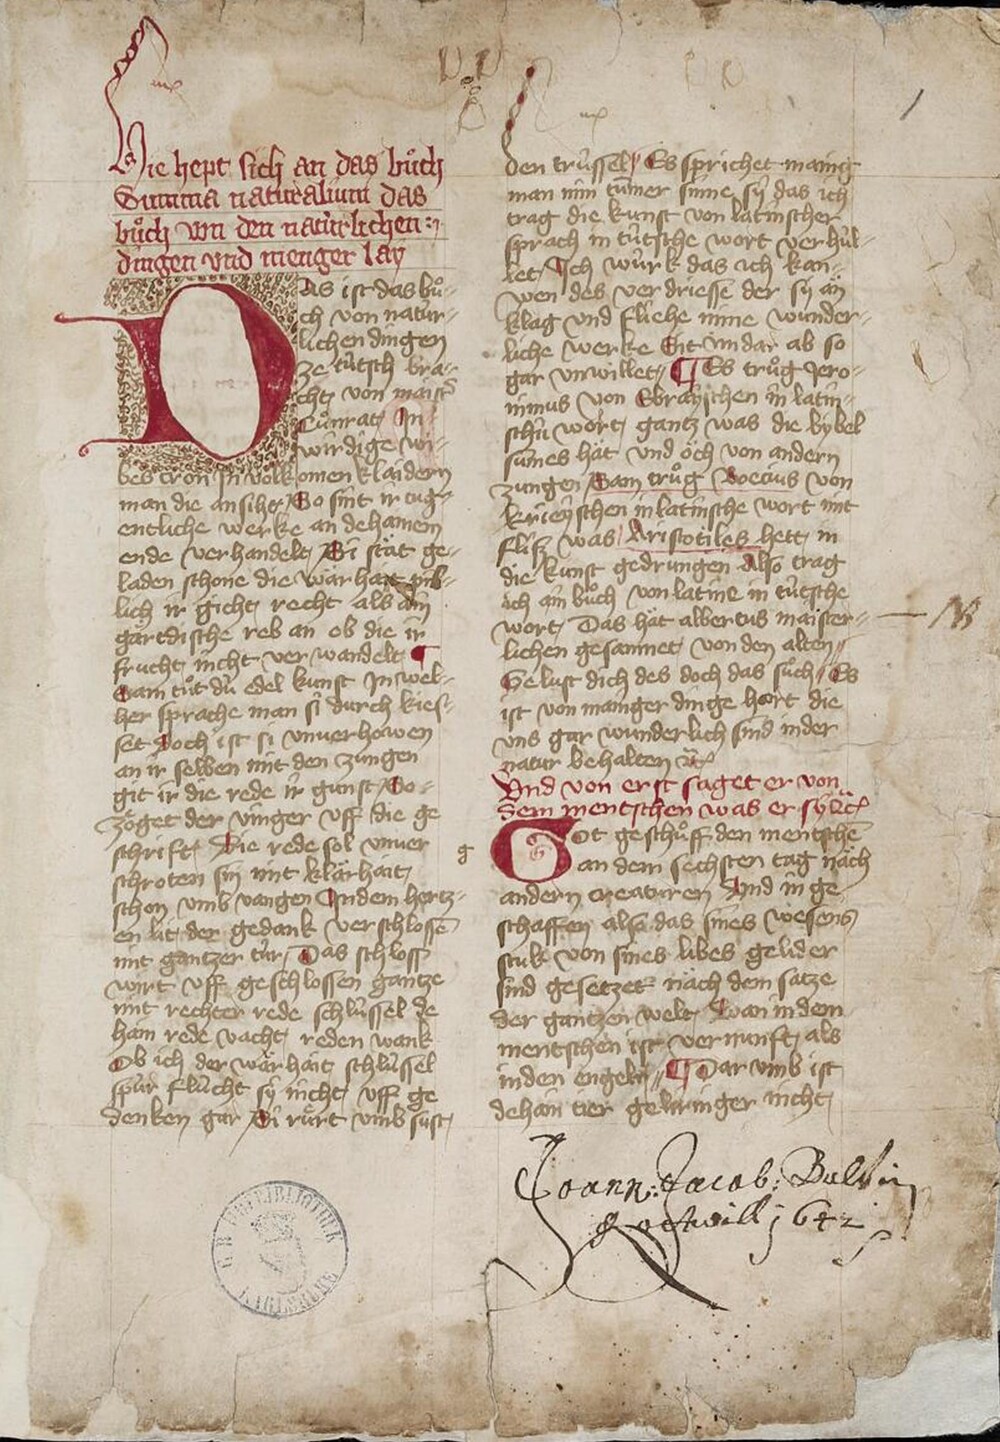 Hie hept sich an das bůch
Summa naturalium das
bůch von den natùrlichen
dingen vnd menger lay
Das ist das bů-
ch von natur-
lichen dingen
ze tùtsch bra-
cht von maister
Cůnrat In
wirdige wi-
bes tron In volkomen klaidern
man die ansiht So sint ir tug-
entliche werke an dehainem
ende verhandelt Si stät ge-
laden schone die warhait
lich ir gicht recht als ain
ob die ir
frucht nicht verwandelt ¶
Sam tůt dù edel kunst In wel-
her sprache man si durch kies-
set Doch ist si vnuerhowen
an ir selben mit den zungen
git ir die rede ir gunst So
zöget der vinger vff die ge
schrift Die rede sol vnuer
schroten sin mit klärhait
schon vmb vangen In dem hertz-
en lit der gedank verschlossen
mit gantzer tùr Das schloss
wirt vff geschlossen gantze
mit rechter rede schlùssel de
hain rede vacht reden wank
Ob ich der wärhait schlùssel
spùr flùcht sy nicht vff ge
denken gar Si růrt vmb sust
den trùssel Es sprichet mainig
man min tùmer sinne sy das ich
trag die kunst von latinscher
sprach in tùtsche wort verhùl-
let Ich wùrk das ich kan
wen des verdriesse der sy än
klag vnd fliehe mine wunder-
liche werke Sit im dar ab so
gar vnwillet ¶ Es trůg Jero-
nimus von Ebrayschen in latin-
schù wort gantz was die bybel
sùnes hät vnd öch von andern
zungen Sam trůg Boecius von
kriey̌schen in latinsche wort mit
fliß was Aristotiles hett in
die kunst gedrungen Also trag
ich ain bůch von latine in tùtsche
wort Das hät albertus maister-
lichen gesamnet von den alten
Gelust dich des doch das sůch Es
ist von mainger dinge hart die
vns gar wunderlich sind in der
natur behalten
Vnd von erst saget er von
dem mentschen was er sy
Got geschůff den mentschen
an dem sechsten tag näch
andern creaturen Vnd in ge
schaffen also das sines wesens
stuk von sines libes gelider
sind gesetzet näch dem satze
der gantzen welt Wan in dem
mentschen ist vernunft als
in den engeln ¶ Dar vmb ist
dehain tier gehiringer nicht
Joann: Jacob:
Rottwill 1642
G. H. BIBLIOTHEK
KARLSRUHE